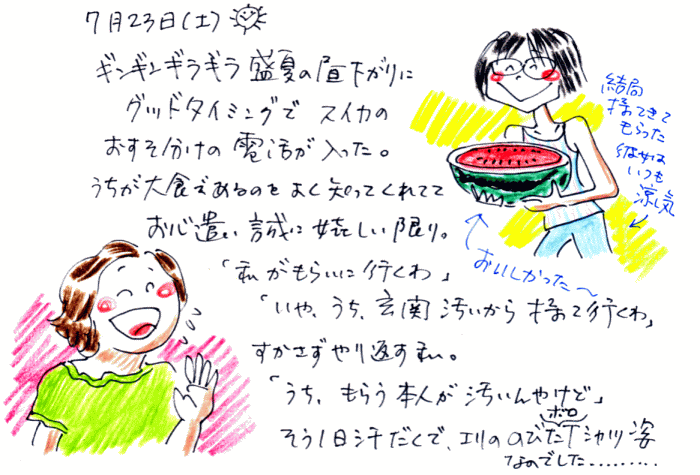 7月23日(土)
ギンギンギラギラ 盛夏の昼下がりに
グッドタイミングで スイカの
おすそ分けの 電話が入った。
うちが大食であるのをよく知ってくれてて
お心遣い 誠に嬉しい限り。
「私がもらいに行くわ」
「いや、うち、玄関 汚いから 持って行くわ」
すかさずやり返す私。
「うち、もらう本人が 汚いんやけど」
そう1日汗だくで、エリの のびた ボロ Tシャツ姿
なのでした………
結局
持ってきて
もらった
彼女は
いつも
涼し気
おいしかった〜